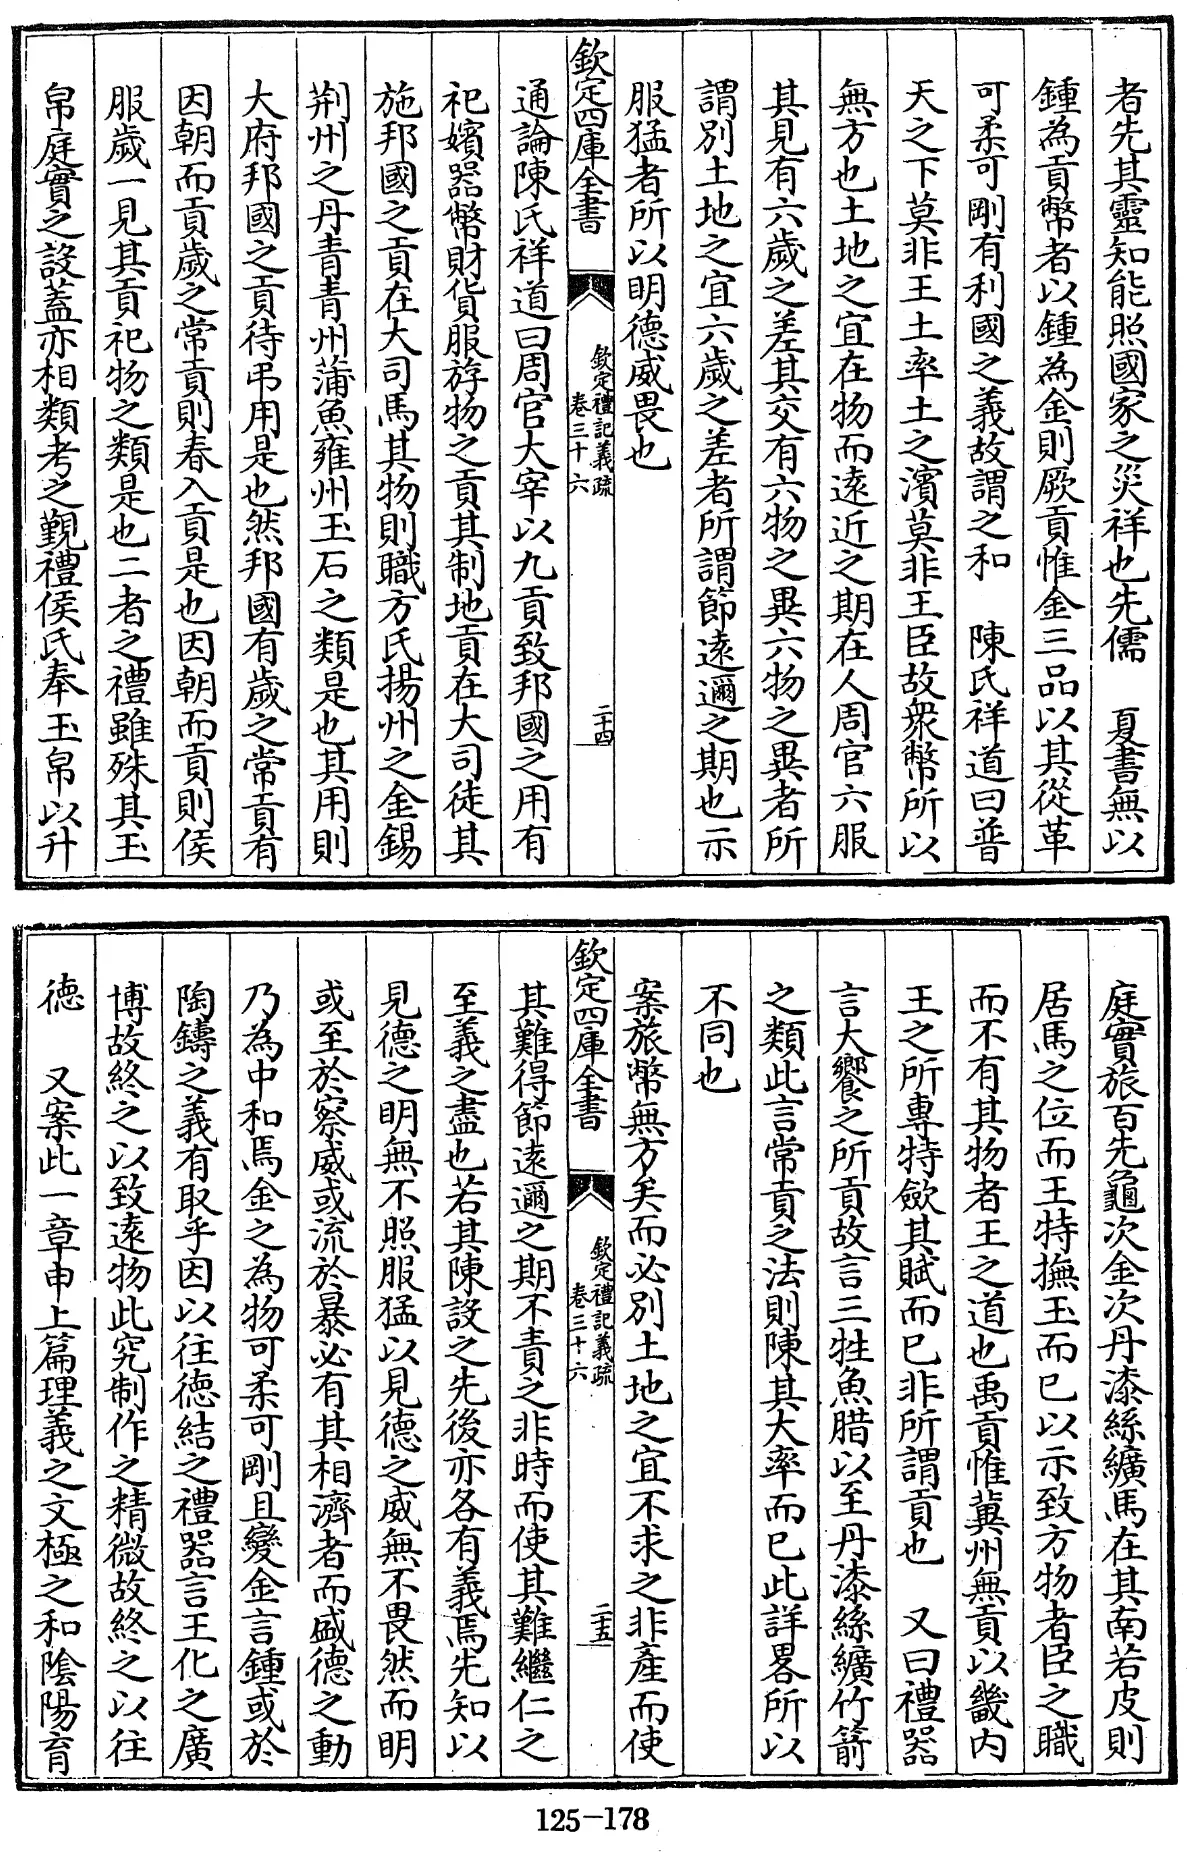 者先其靈知能照國家之災祥也先儒　夏書無以
鍾為貢幣者以鍾為金則厥貢惟金三品以其從革
可柔可剛有利國之義故謂之和　陳氏祥道曰普
天之下莫非王土率土之濱莫非王臣故衆幣所以
無方也土地之宜在物而遠近之期在人周官六服
其見有六歲之差其交有六物之異六物之異者所
謂別土地之宜六歲之差者所謂節遠邇之期也示
服猛者所以明德威畏也
欽定四庫全書
欽定禮記義疏
卷三十六
二十四
通論陳氏祥道曰周官大宰以九貢致邦國之用有
祀嬪器幣財貨服斿物之貢其制地貢在大司徒其
施邦國之貢在大司馬其物則職方氏揚州之金錫
荆州之丹青青州蒲魚雍州玉石之類是也其用則
大府邦國之貢待弔用是也然邦國有歲之常貢有
因朝而貢歲之常貢則春入貢是也因朝而貢則侯
服歲一見其貢祀物之類是也二者之禮雖殊其玉
帛庭實之設蓋亦相類考之覲禮侯氏奉玉帛以升
庭實旅百先龜次金次丹漆絲纊馬在其南若皮則
居馬之位而王特撫玉而已以示致方物者臣之職
而不有其物者王之道也禹貢惟冀州無貢以畿内
王之所專特斂其賦而已非所謂貢也　又曰禮器
言大饗之所貢故言三牲魚腊以至丹漆絲纊竹箭
之類此言常貢之法則陳其大率而已此詳畧所以
不同也
案旅幣無方矣而必別土地之宜不求之非產而使
欽定四庫全書
欽定禮記義疏
卷三十六
二十五
其難得節遠邇之期不責之非時而使其難繼仁之
至義之盡也若其陳設之先後亦各有義焉先知以
見德之明無不照服猛以見德之威無不畏然而明
或至於察威或流於暴必有其相濟者而盛德之動
乃為中和焉金之為物可柔可剛且變金言鍾或於
陶鑄之義有取乎因以往德結之禮器言王化之廣
博故終之以致遠物此究制作之精微故終之以往
德　又案此一章申上篇理義之文極之和陰陽育
125-178